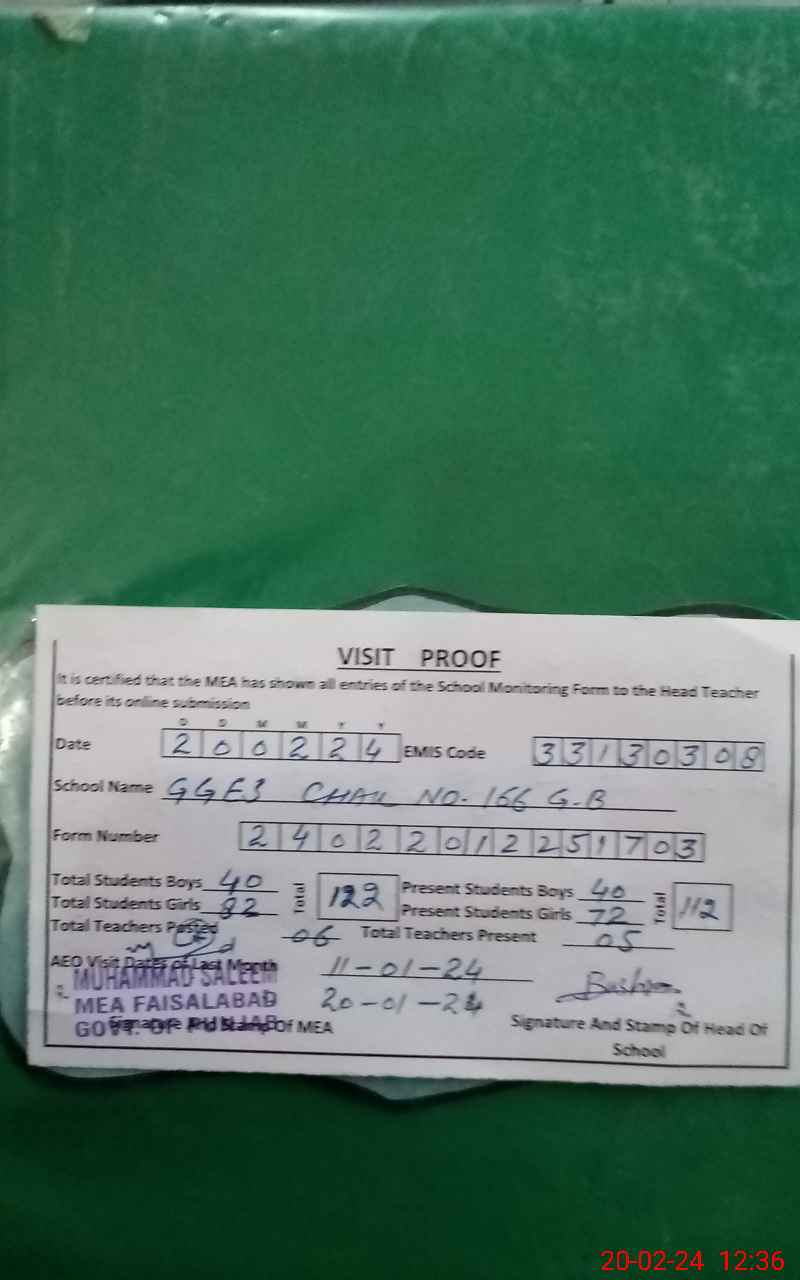 VISIT PROOF
It is certified that the MEA has shown all entries of the School Monitoring Form to the Head Teacher
before its online submission
D D M M Y Y
Date 2 0 0 2 2 4 EMIS Code 3 3 1 3 0 3 0 8
School Name GGES CHAK NO. 166 G.B
Form Number 2 4 0 2 2 0 1 2 2 5 1 7 0 3
Total Students Boys 40 Total 122 Present Students Boys 40 Total 112
Total Students Girls 82 Present Students Girls 72
Total Teachers Posted 06 Total Teachers Present 05
AEO Visit Dates of Last Month 11-01-24
MUHAMMAD SALEEM
MEA FAISALABAD 20-01-24 Bushra
GOVT. OF PUNJAB
Signature And Stamp Of MEA Signature And Stamp Of Head Of
School
20-02-24 12:36